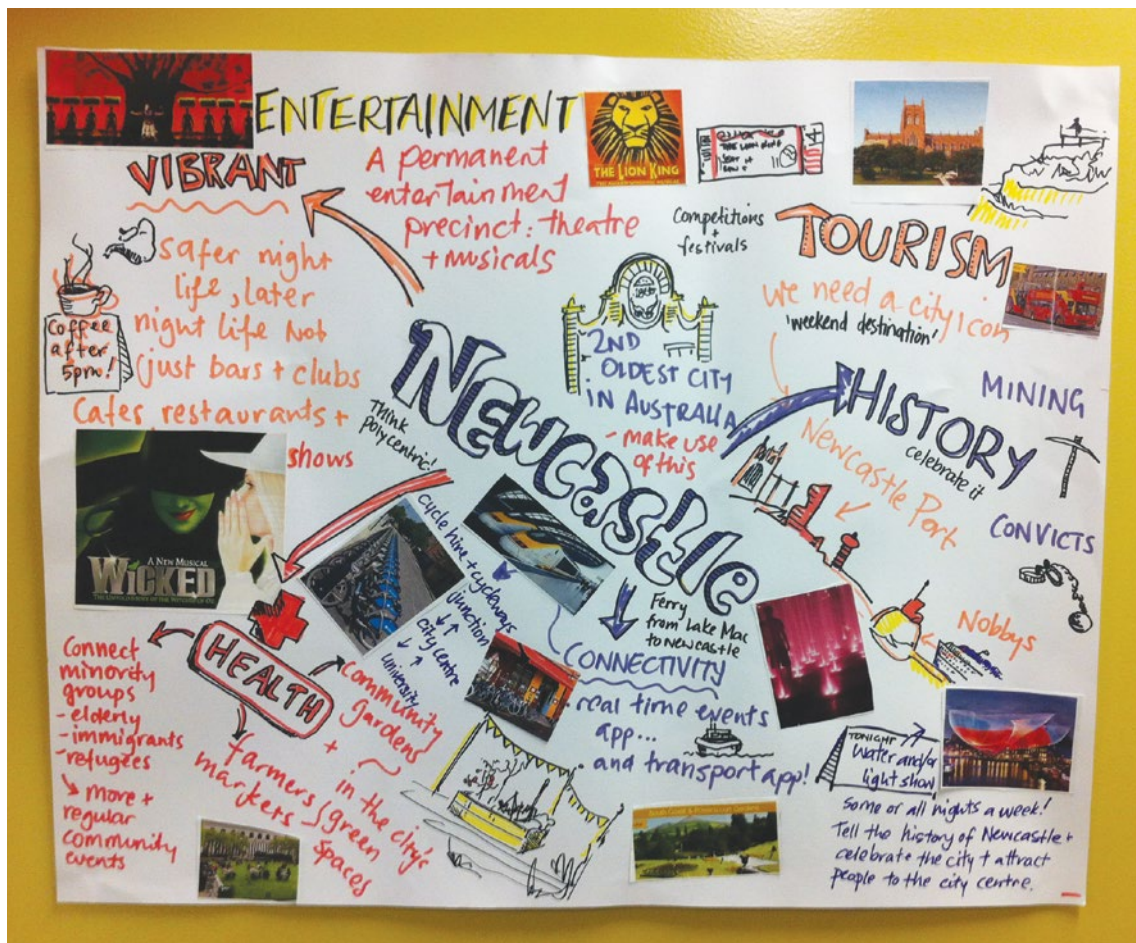 ENTERTAINMENT
VIBRANT
A permanent
entertainment
precinct: theatre
+ musicals
THE LION KING
Competitions
+
festivals
TOURISM
We need a city icon
'weekend destination'
safer night
life, later
night life not
just bars + clubs
Cafes, restaurants +
shows
Coffee
after
5pm!
2ND
OLDEST CITY
IN AUSTRALIA
- make use
of this
HISTORY
celebrate it
MINING
CONVICTS
Newcastle Port
Nobbys
Newcastle
Think
polycentric!
A NEW MUSICAL
WICKED
cycle hire + cycleways
junction
city centre
university
Ferry
from Lake Mac
to Newcastle
CONNECTIVITY
- real time events
app...
- and transport app!
HEALTH
Connect
minority
groups
- elderly
- immigrants
- refugees
more +
regular
community
events
Community
gardens
+
farmers
markers
in the city's
green
spaces
TONIGHT
Water and/or
light show
Some or all nights a week!
Tell the history of Newcastle +
celebrate the city + attract
people to the city centre.